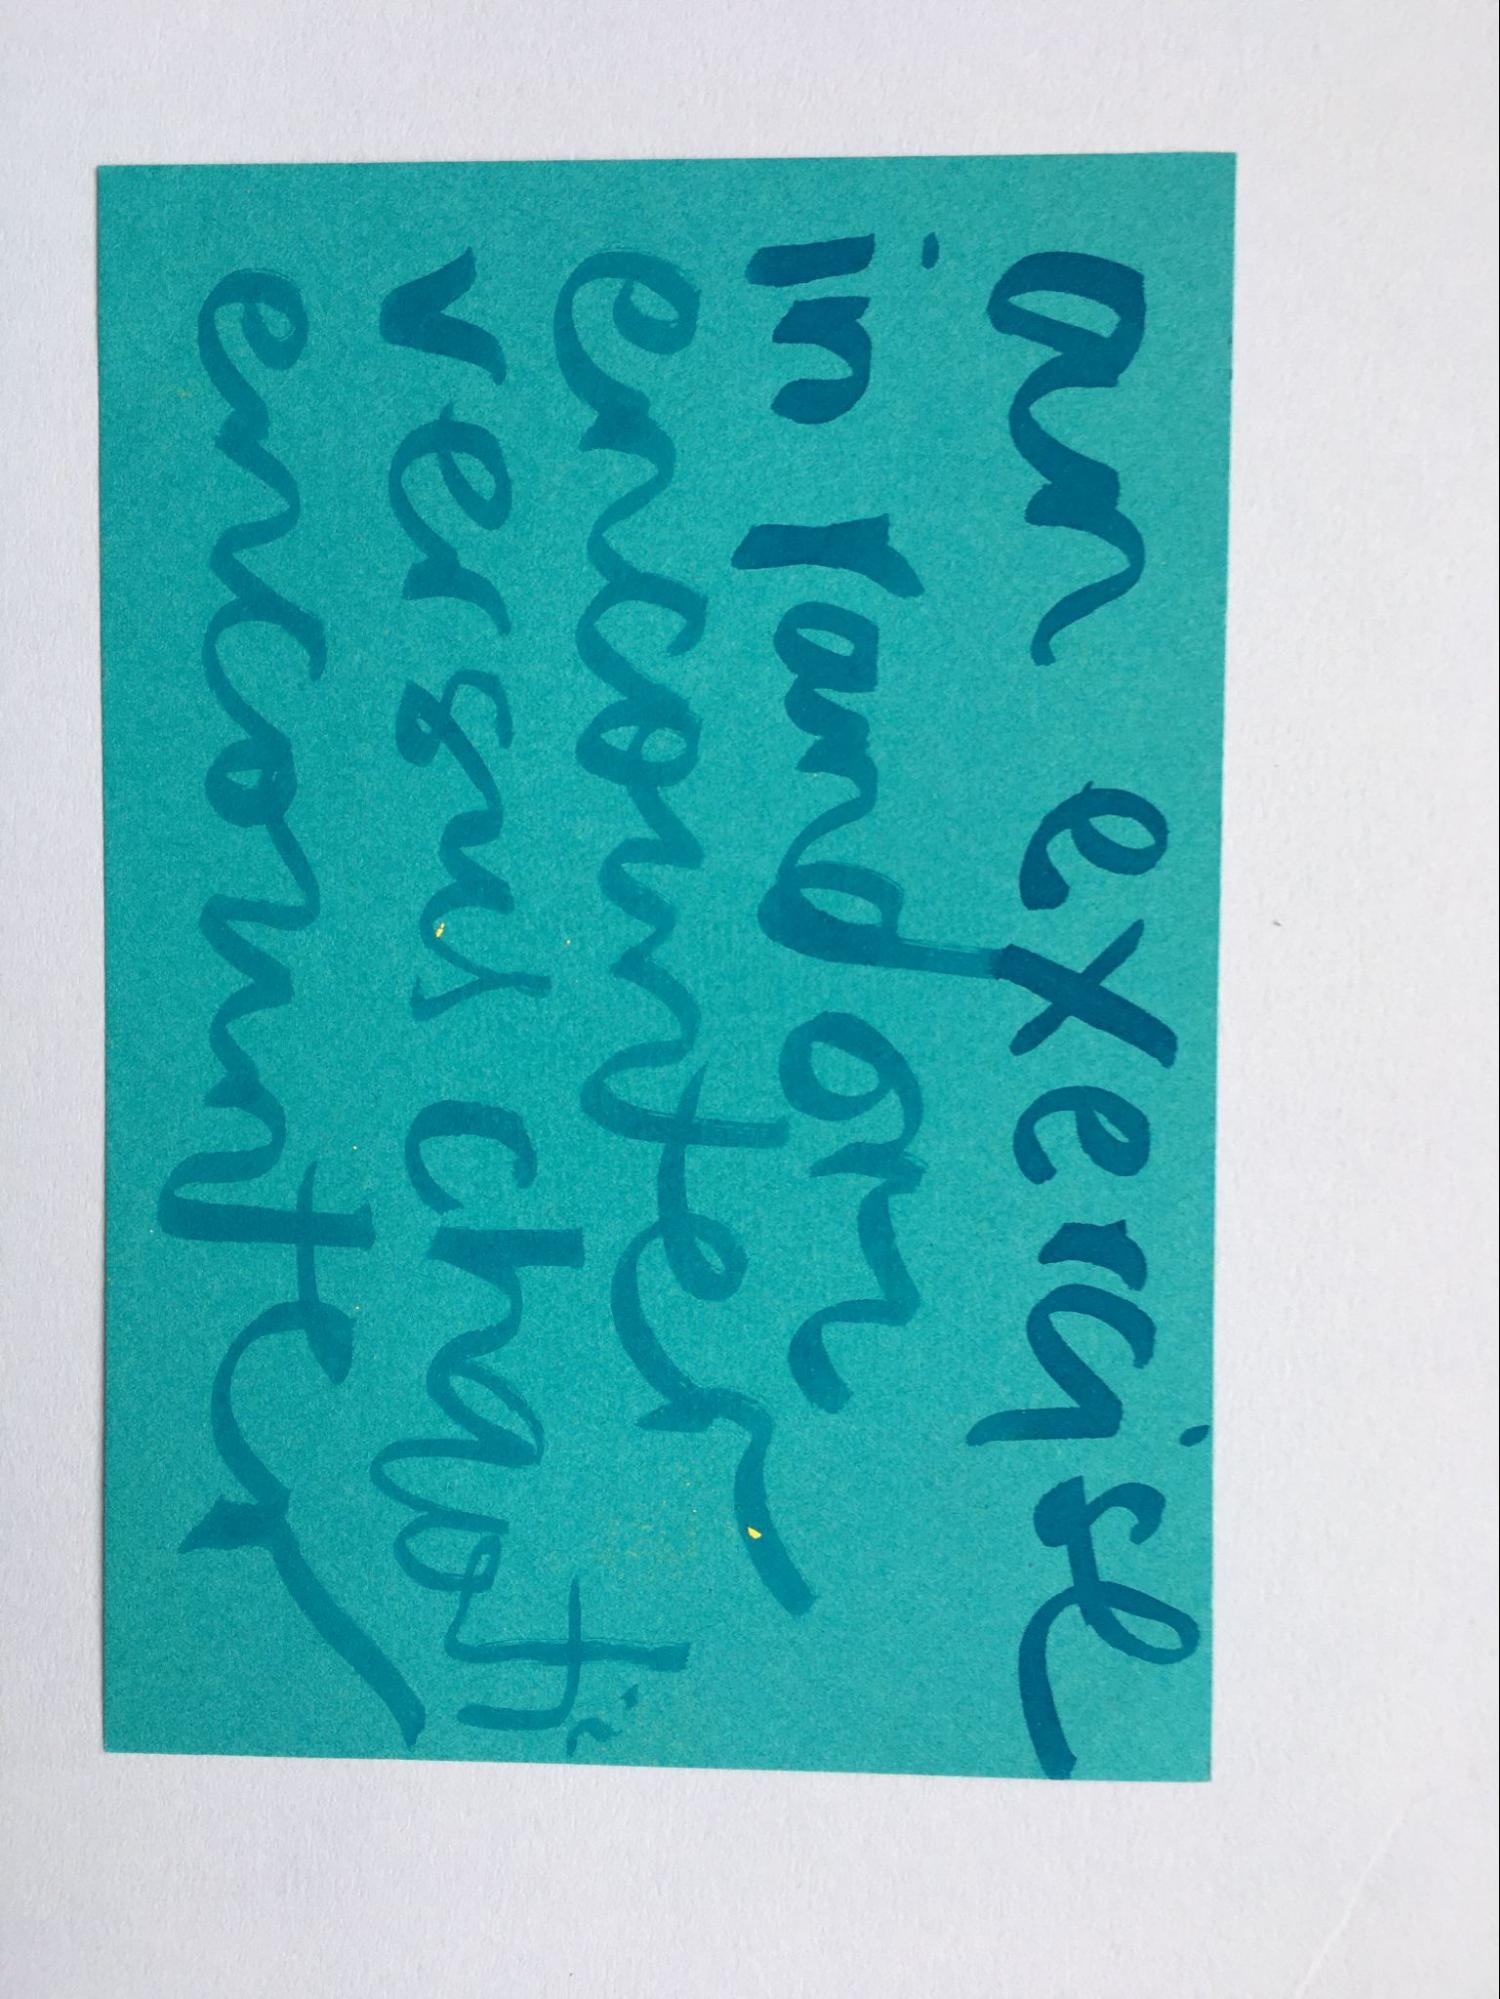 an exercise
in random
encounter
versus chaoti
encounter